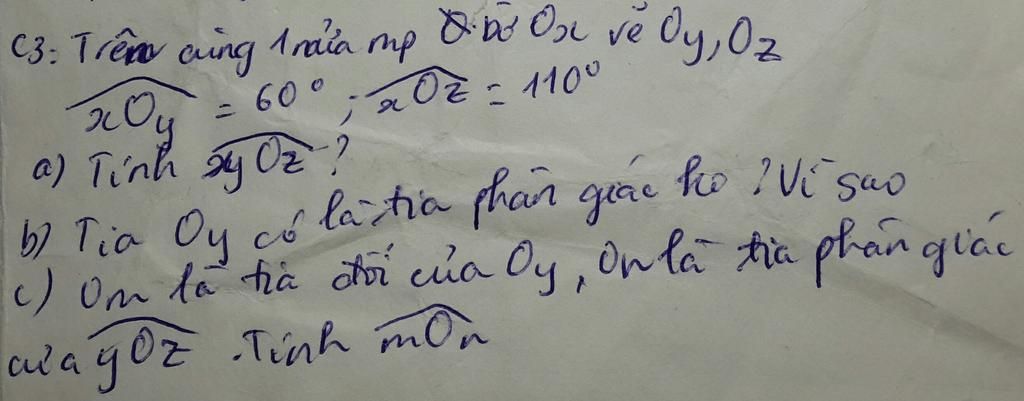 C3: Trên cùng 1 nửa mp bờ Ox vẽ Oy, Oz
xOy = 60° ; xOz = 110°
a) Tính yOz ?
b) Tia Oy có là tia phân giác ko ? Vì sao
c) Om là tia đối của Oy, On là tia phân giác
của yOz . Tính mOn